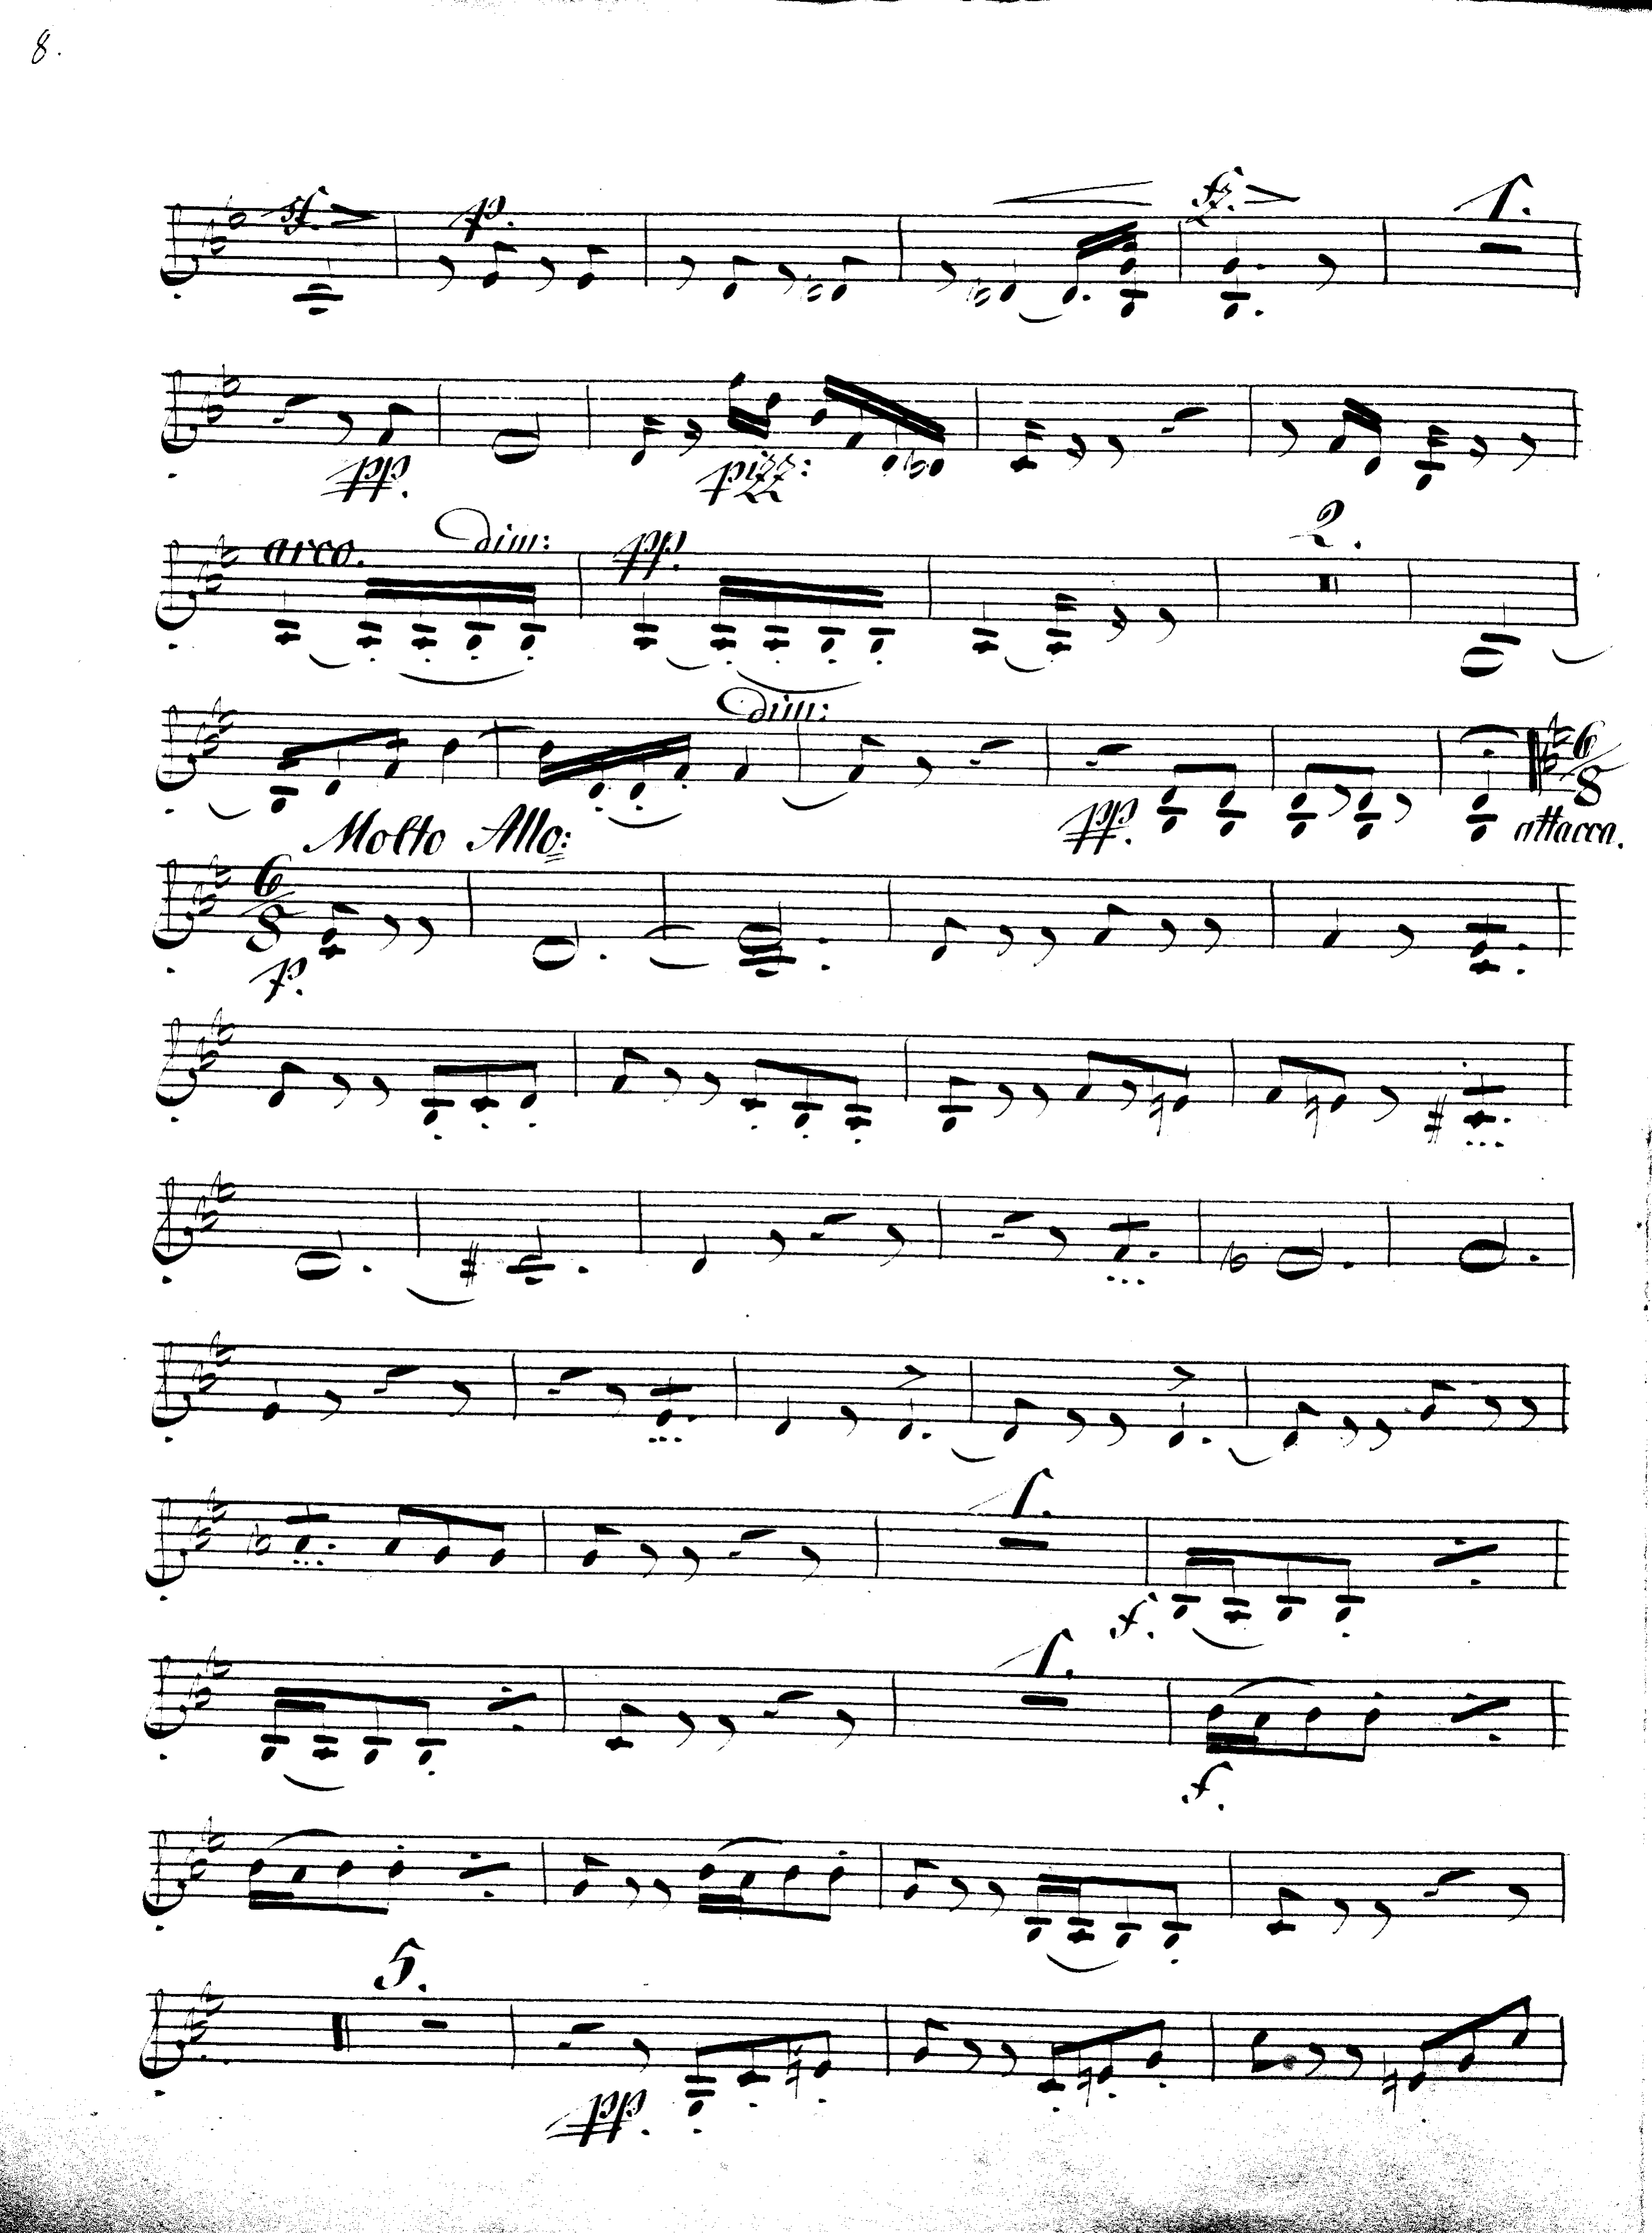 8.
sf. p. fz. 1.
pp. pizz:
arco. dim: pp. 2.
dim: pp. 6/8 attacca.
Molto Allo:
6/8 p.
1. f.
1. f.
5.
pp.